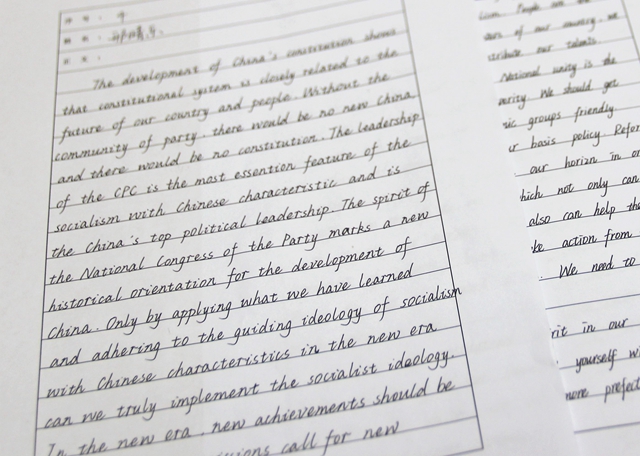 The development of China's constitution shows
that constitutional system is closely related to the
future of our country and people. Without the
community of party, there would be no new China,
and there would be no constitution. The leadership
of the CPC is the most essention feature of the
socialism with Chinese characteristic and is
the China's top political leadership. The spirit of
the National Congress of the Party marks a new
historical orientation for the development of
China. Only by applying what we have learned
and adhering to the guiding ideology of socialism
with Chinese characteristics in the new era
can we truly implement the socialist ideology.
In the new era, new achievements should be
call for new
of our country, we
our talents
National unity is the
We should get
groups friendly
basis policy Refor
our horizn in or
hich not only can
also can help the
action from
We need to
rit in our
yourself wi
more prefec